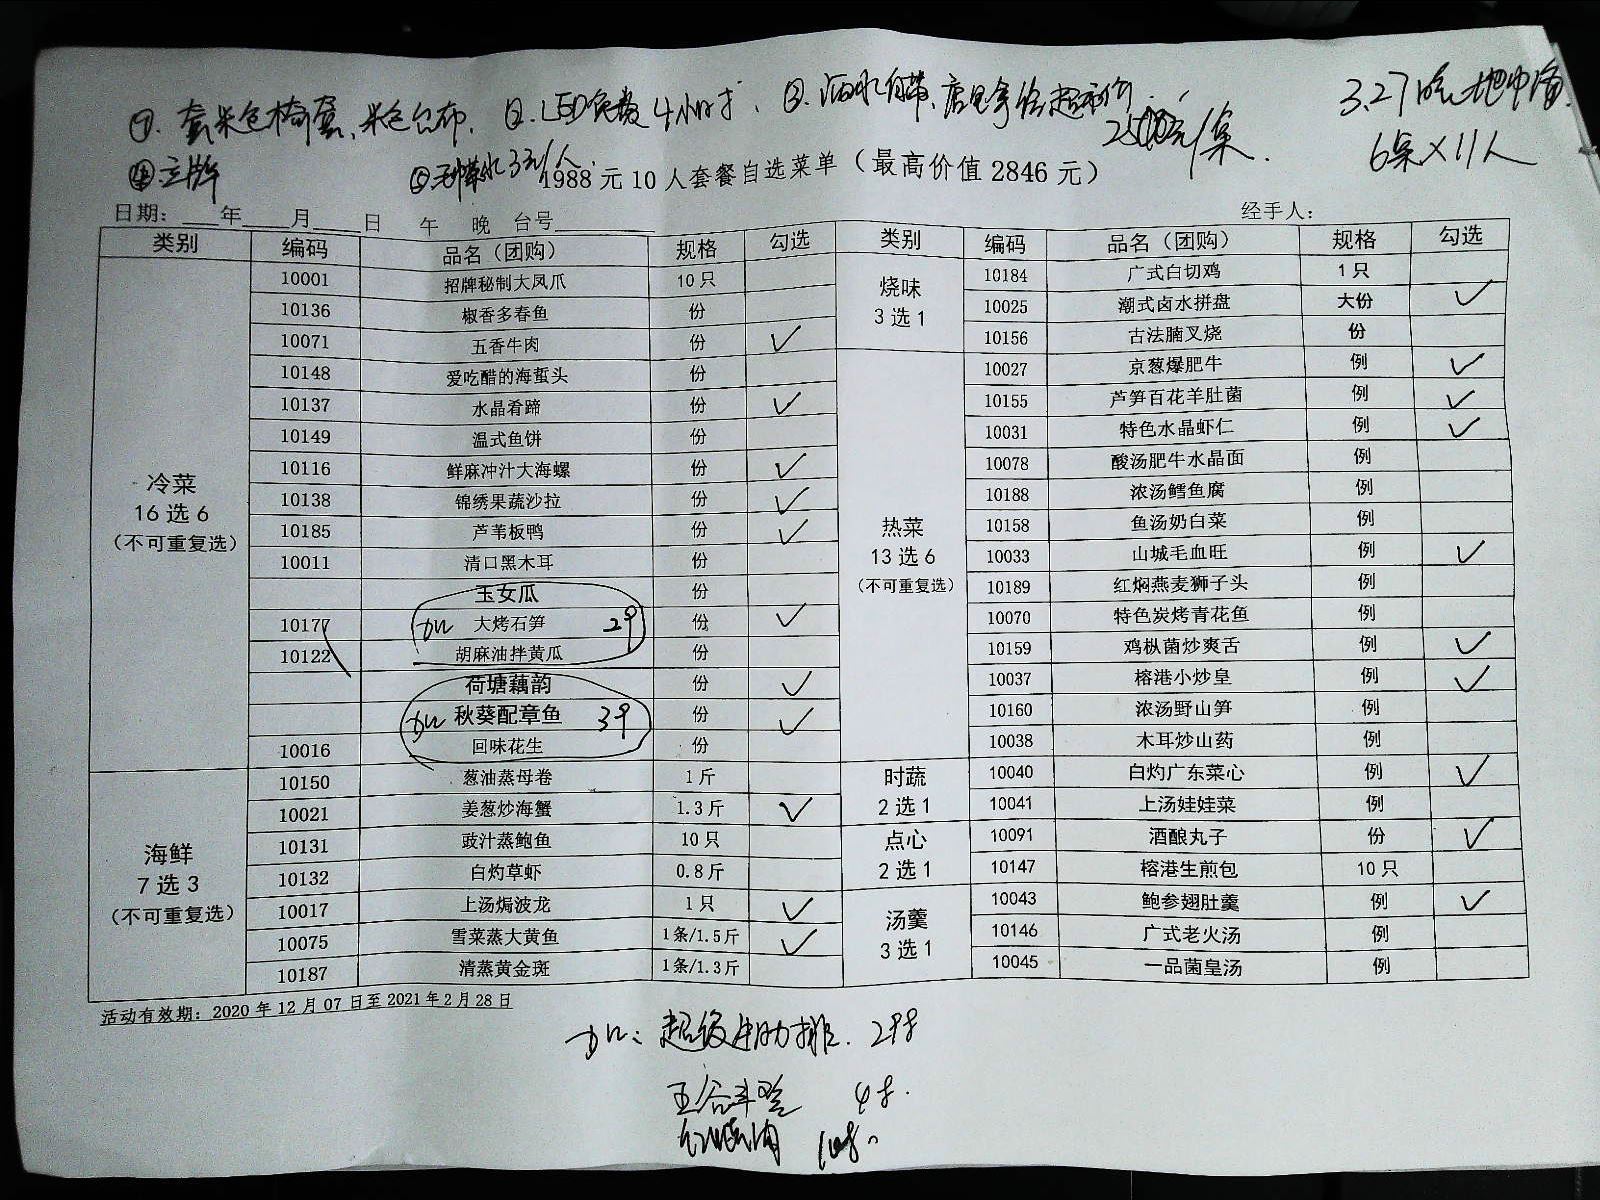 ①. 套米色椅套、米色台布. ②. LED免费4小时、③. 酒水自带、
3.27晚
6桌×11人
④立牌 ⑤ 3元/人
1988元10人套餐自选菜单（最高价值2846元）
日期：___年____月____日 午 晚 台号________ 经手人：
类别 编码 品名（团购） 规格 勾选 类别 编码 品名（团购） 规格 勾选
冷菜
16选6
（不可重复选）
10001 招牌秘制大凤爪 10只
10136 椒香多春鱼 份
10071 五香牛肉 份 ✓
10148 爱吃醋的海蜇头 份
10137 水晶肴蹄 份 ✓
10149 温式鱼饼 份
10116 鲜麻冲汁大海螺 份 ✓
10138 锦绣果蔬沙拉 份 ✓
10185 芦苇板鸭 份 ✓
10011 清口黑木耳 份
玉女瓜 份
10177 加 大烤石笋 29 份 ✓
10122 胡麻油拌黄瓜 份
荷塘藕韵 份 ✓
加 秋葵配章鱼 39 份 ✓
10016 回味花生 份
海鲜
7选3
（不可重复选）
10150 葱油蒸母卷 1斤
10021 姜葱炒海蟹 1.3斤 ✓
10131 豉汁蒸鲍鱼 10只
10132 白灼草虾 0.8斤
10017 上汤焗波龙 1只 ✓
10075 雪菜蒸大黄鱼 1条/1.5斤 ✓
10187 清蒸黄金斑 1条/1.3斤
烧味
3选1
10184 广式白切鸡 1只
10025 潮式卤水拼盘 大份 ✓
10156 古法腩叉烧 份
热菜
13选6
（不可重复选）
10027 京葱爆肥牛 例 ✓
10155 芦笋百花羊肚菌 例 ✓
10031 特色水晶虾仁 例 ✓
10078 酸汤肥牛水晶面 例
10188 浓汤鳕鱼腐 例
10158 鱼汤奶白菜 例
10033 山城毛血旺 例 ✓
10189 红焖燕麦狮子头 例
10070 特色炭烤青花鱼 例
10159 鸡枞菌炒爽舌 例 ✓
10037 榕港小炒皇 例 ✓
10160 浓汤野山笋 例
10038 木耳炒山药 例
时蔬
2选1
10040 白灼广东菜心 例 ✓
10041 上汤娃娃菜 例
点心
2选1
10091 酒酿丸子 份 ✓
10147 榕港生煎包 10只
汤羹
3选1
10043 鲍参翅肚羹 例 ✓
10146 广式老火汤 例
10045 一品菌皇汤 例
活动有效期：2020年12月07日至2021年2月28日
加：超级牛肋排.
五谷丰登